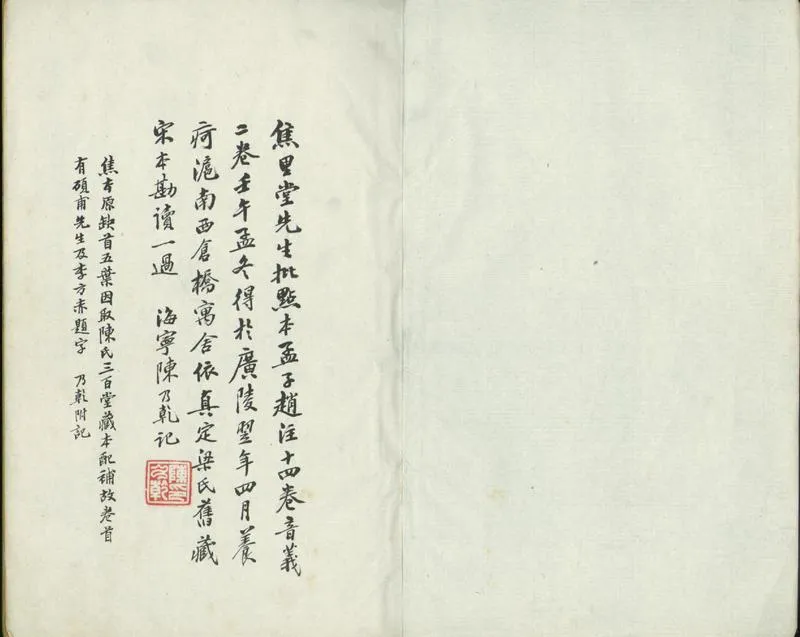 焦里堂先生批點本孟子趙注十四卷音義
二卷壬午孟冬得於廣陵翌年四月養
疴滬南西倉橋寓舍依真定梁氏舊藏
宋本勘讀一過 海寧陳乃乾記
陳印乃乾
焦本原缺首五葉因取陳氏三百堂藏本配補故卷首
有碩甫先生及李方赤題字 乃乾附記